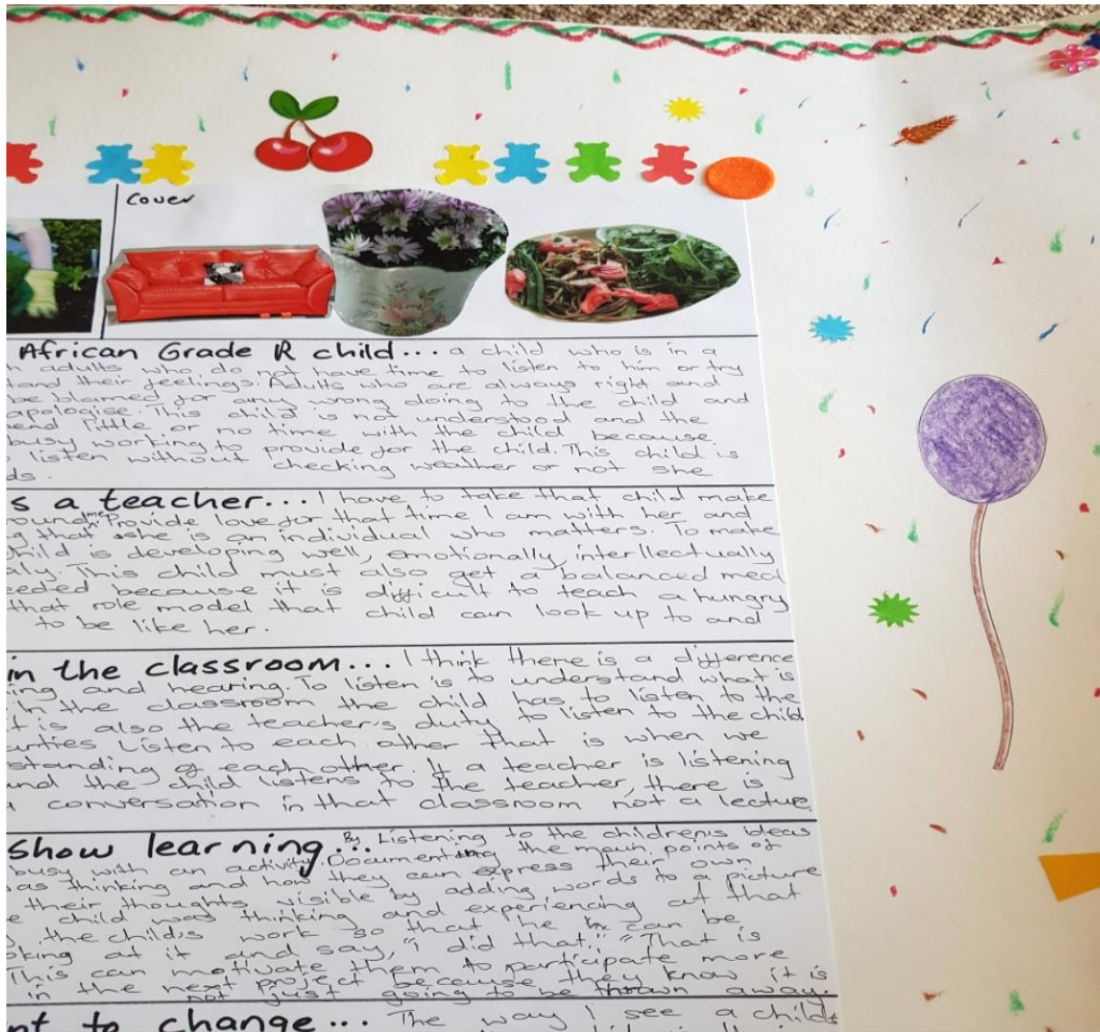 Cover
African Grade R child... a child who is in a
adults who do not have time to listen to him or try
and their feelings. Adults who are always right and
be blamed for any wrong doing to the child and
apologise. This child is not understood and the
end little or no time with the child because
busy working to provide for the child. This child is
listen without checking weather or not she
ds.
s a teacher... I have to take that child make
ound me Provide love for that time I am with her and
g that she is an individual who matters. To make
hild is developing well, emotionally, interllectually
aly. This child must also get a balanced meal
eeded because it is difficult to teach a hungry
that role model that child can look up to and
to be like her.
in the classroom... I think there is a difference
ing and hearing. To listen is to understand what is
In the classroom the child has to listen to the
it is also the teacher's duty to listen to the child
arties Listen to each other that is when we
standing of each other. If a teacher is listening
and the child listens to the teacher, there is
a conversation in that classroom not a lecture.
show learning... By Listening to the children's ideas
busy with an activity. Documenting the main points of
as thinking and how they can express their own
their thoughts visible by adding words to a picture
e child was thinking and experiencing at that
the child's work so that he can be
oking at it and say, "I did that." "That is
This can motivate them to participate more
in the next project because they know it is
not just going to be thrown away.
nt to change... The way I see a child